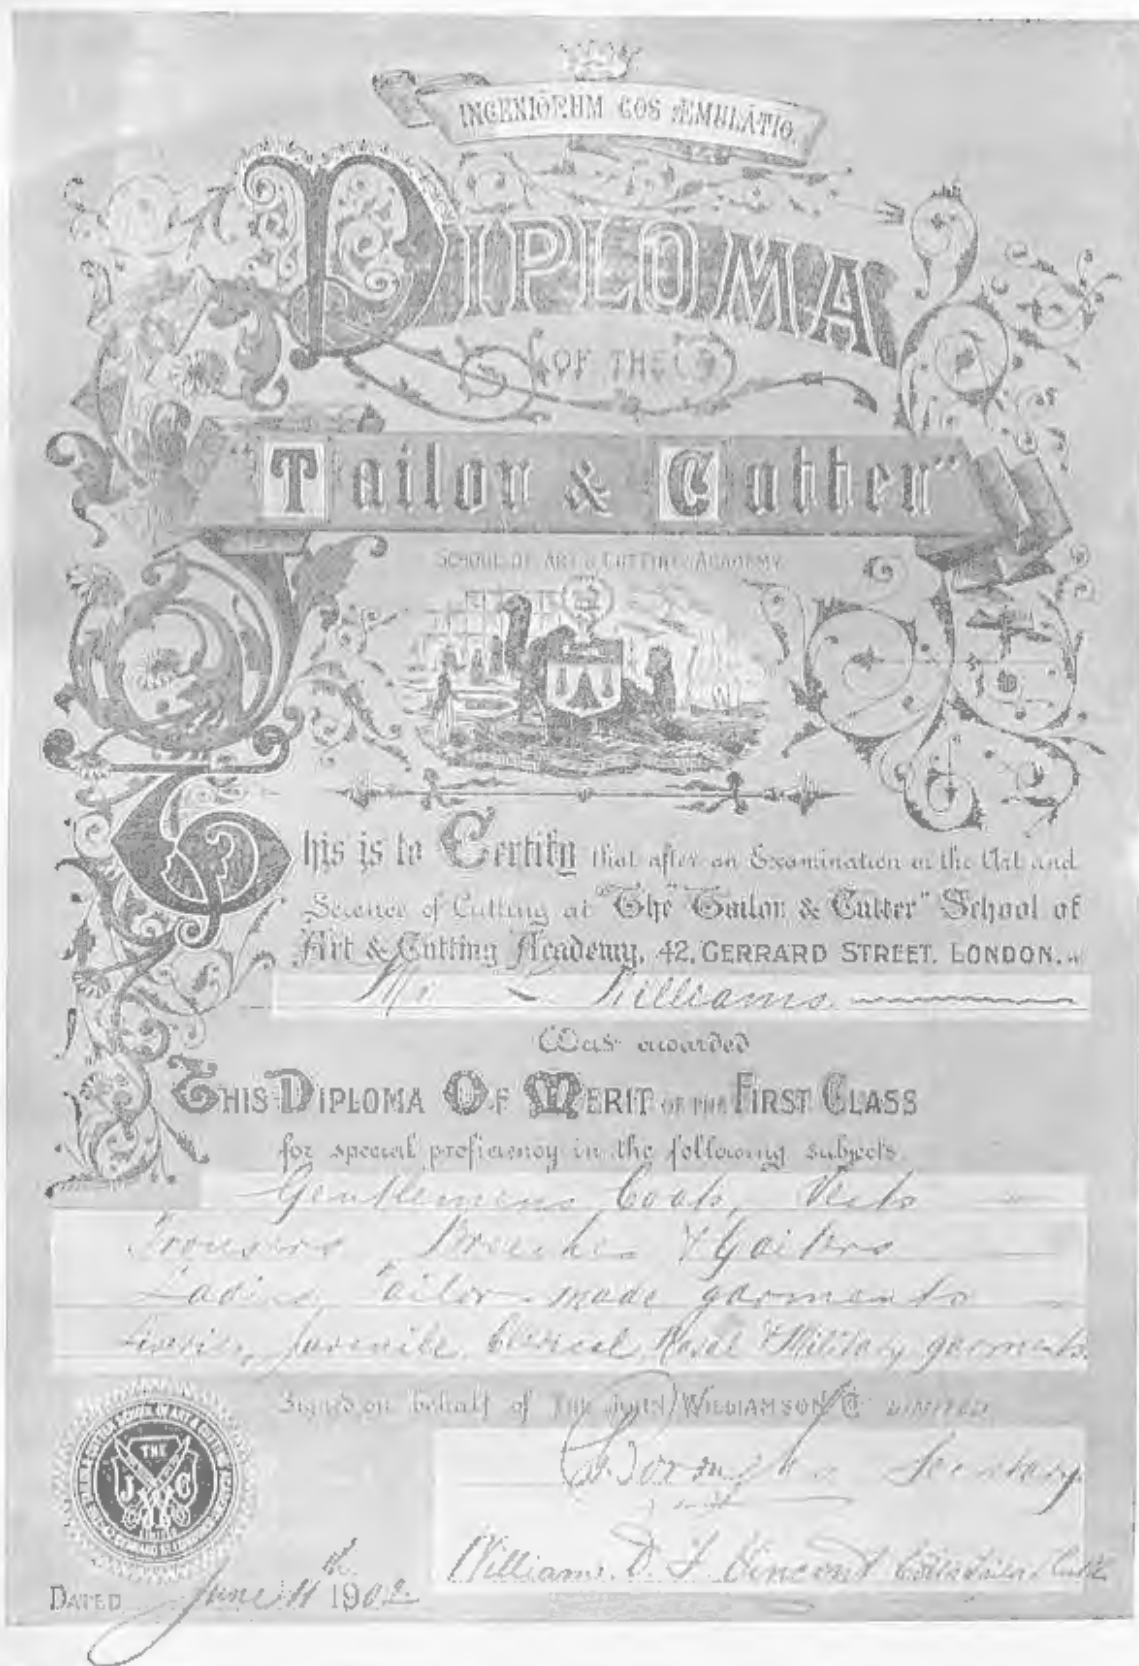 INGENIORUM COS ÆMULATIO.
DIPLOMA
OF THE
"Tailor & Cutter"
SCHOOL OF ART & CUTTING ACADEMY
This is to Certify that after an Examination in the Art and
Science of Cutting at "The "Tailor & Cutter" School of
Art & Cutting Academy, 42, GERRARD STREET, LONDON.
Mr Williams
Was awarded
THIS DIPLOMA OF MERIT OF THE FIRST CLASS
for special proficiency in the following subjects
Gentlemens Coats, Vests
Trousers Breeches & Gaiters
Ladies Tailor-made garments
Liveries, Juvenile, Clerical, Naval & Military garments.
Signed on behalf of THE JOHN WILLIAMSON Co LIMITED
Secretary
William D. F. Vincent
THE
J W C
LIMITED
DATED June 11th 1902